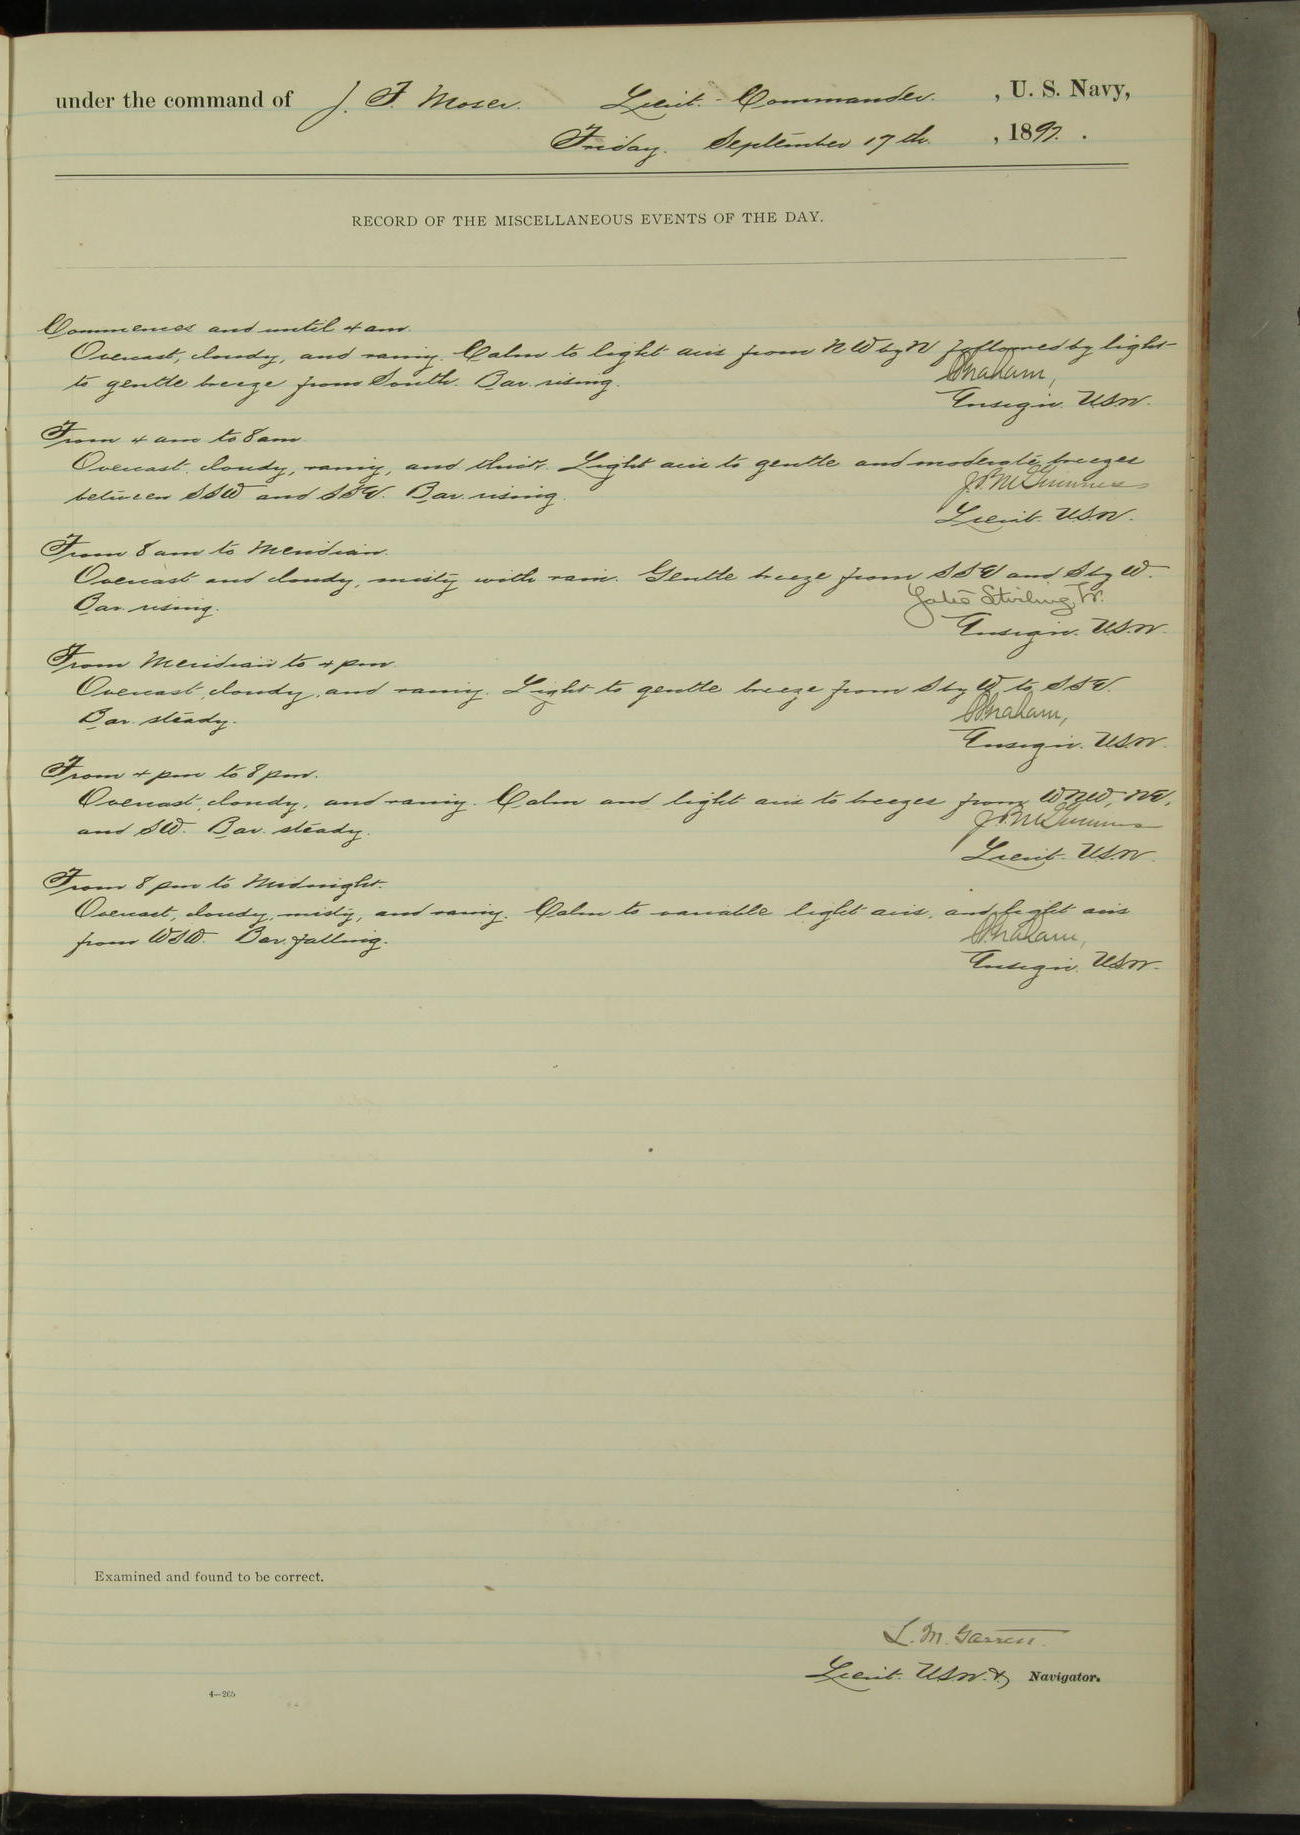 under the command of J. F. Moser. Lieut.-Commander. , U. S. Navy,
Friday. September 17th. , 1897. .
RECORD OF THE MISCELLANEOUS EVENTS OF THE DAY.
Commences and until 4 am.
Overcast, cloudy, and rainy. Calm to light airs from NW by N followed by light
to gentle breeze from South. Bar. rising.
Ensign. USN.
From 4 am to 8 am.
Overcast, cloudy, rainy, and thick. Light airs to gentle and moderate breezes
between SSW and SSE. Bar. rising.
Lieut. USN.
From 8 am to Meridian.
Overcast and cloudy, misty with rain. Gentle breeze from SSE and S by W.
Bar. rising.
Yates Stirling, Jr.
Ensign. USN.
From Meridian to 4 pm.
Overcast, cloudy, and rainy. Light to gentle breeze from S by W to SSE.
Bar. steady.
Ensign. USN.
From 4 pm to 8 pm.
Overcast, cloudy, and rainy. Calm and light airs to breezes from WNW, NE,
and SW. Bar. steady.
Lieut. USN.
From 8 pm to Midnight.
Overcast, cloudy, misty, and rainy. Calm to variable light airs, and light airs
from WSW. Bar. falling.
Ensign. USN.
Examined and found to be correct.
L. M. Garrett.
Lieut. USN. & Navigator.
4—265